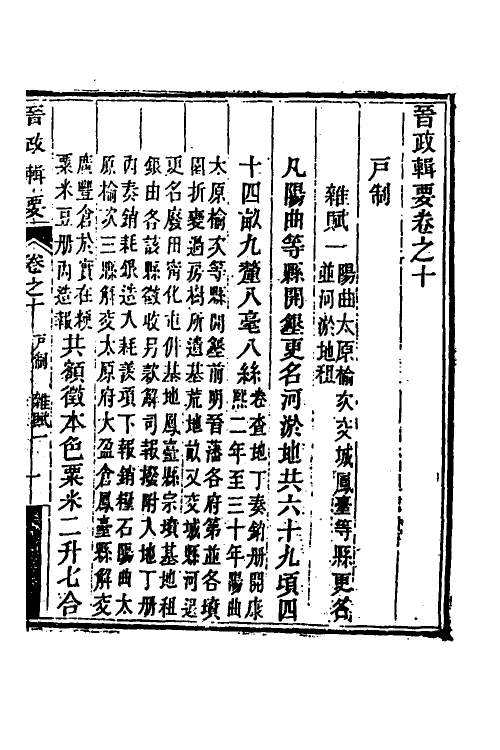 晉政輯要卷之十
戶制
雜賦一
陽曲太原榆次交城鳳臺等縣更名
並河淤地租
凡陽曲等縣開墾更名河淤地共六十九頃四
十四畝九釐八毫八絲
卷查地丁奏銷册開康
熙二年至三十年陽曲
太原榆次等縣開墾前明晉藩各府第並各墳
園折變過房樹所遺基荒地畝又交城縣河退
更名廢田甯化屯併基地鳳臺縣宗墳基地租
銀由各該縣徵收另款解司報撥附入地丁册
內奏銷耗銀造入耗羨項下報銷糧石陽曲太
原榆次三縣解交太原府大盈倉鳳臺縣解交
廣豐倉於實在粳
粟米豆册內造報
共額徵本色粟米二升七合
晉政輯要
卷之十
戶制
雜賦一
一